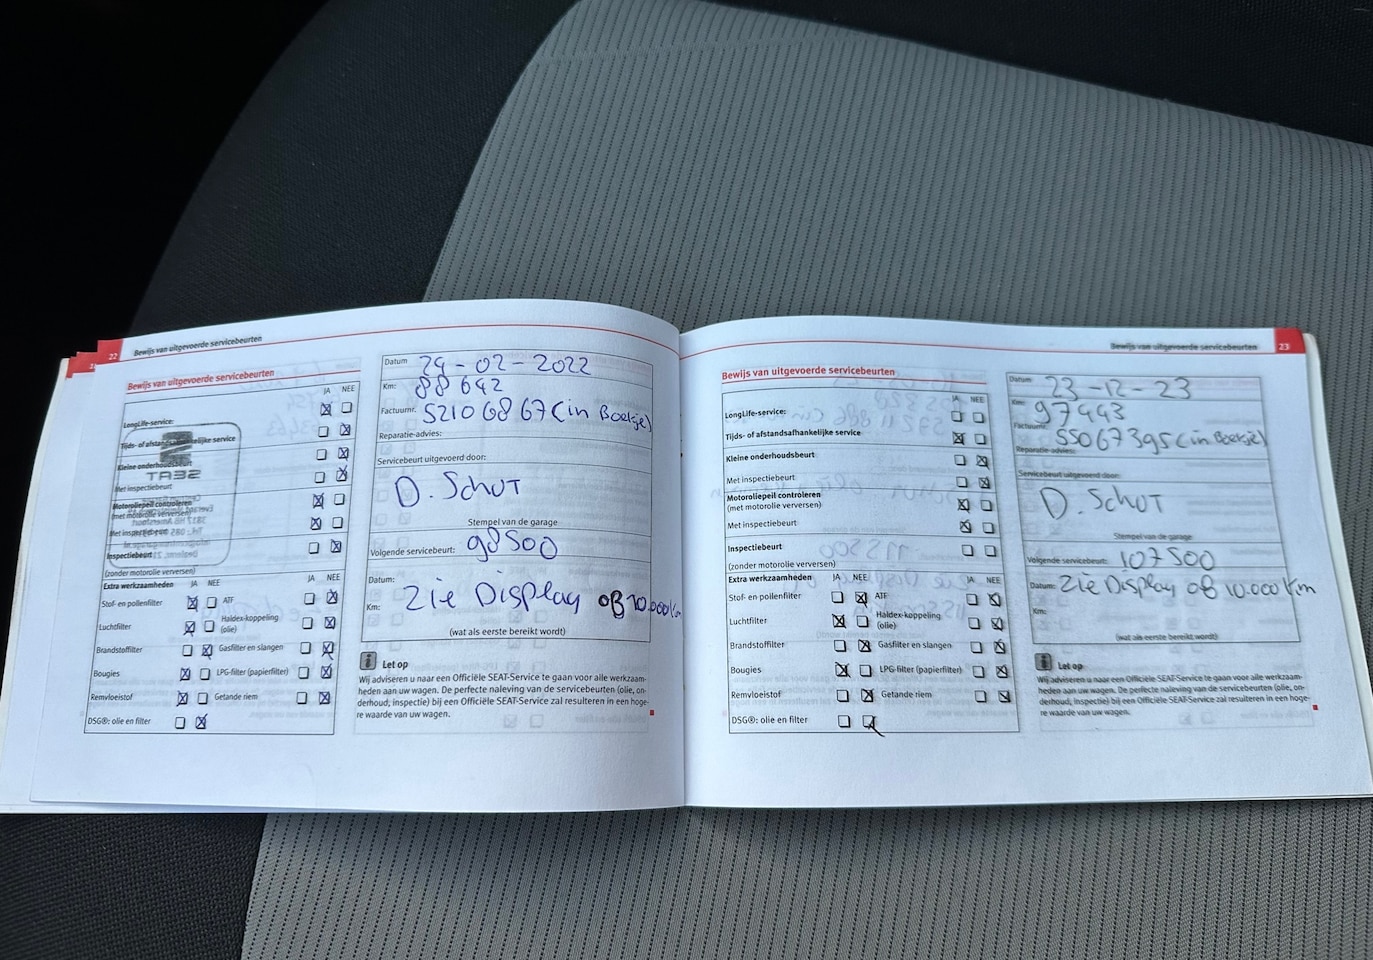 22
Bewijs van uitgevoerde servicebeurten
Bewijs van uitgevoerde servicebeurten
JA NEE
LongLife-service:
Tijds- of afstandsafhankelijke service
Kleine onderhoudsbeurt
Met inspectiebeurt
Motoroliepeil controleren
(met motorolie verversen)
Met inspectiebeurt
Inspectiebeurt
(zonder motorolie verversen)
Extra werkzaamheden JA NEE JA NEE
Stof- en pollenfilter ATF
Luchtfilter Haldex-koppeling
(olie)
Brandstoffilter Gasfilter en slangen
Bougies LPG-filter (papierfilter)
Remvloeistof Getande riem
DSG®: olie en filter
SEAT
Datum 24-02-2022
Km: 88642
Factuurnr. 52106867 (in Boekje)
Reparatie-advies:
Servicebeurt uitgevoerd door:
D. Schut
Stempel van de garage
Volgende servicebeurt: 98500
Datum:
Zie Display of 10.000km
Km:
(wat als eerste bereikt wordt)
i Let op
Wij adviseren u naar een Officiële SEAT-Service te gaan voor alle werkzaam-
heden aan uw wagen. De perfecte naleving van de servicebeurten (olie, on-
derhoud, inspectie) bij een Officiële SEAT-Service zal resulteren in een hoge-
re waarde van uw wagen.
Bewijs van uitgevoerde servicebeurten
23
Bewijs van uitgevoerde servicebeurten
JA NEE
LongLife-service:
Tijds- of afstandsafhankelijke service
Kleine onderhoudsbeurt
Met inspectiebeurt
Motoroliepeil controleren
(met motorolie verversen)
Met inspectiebeurt
Inspectiebeurt
(zonder motorolie verversen)
Extra werkzaamheden JA NEE JA NEE
Stof- en pollenfilter ATF
Luchtfilter Haldex-koppeling
(olie)
Brandstoffilter Gasfilter en slangen
Bougies LPG-filter (papierfilter)
Remvloeistof Getande riem
DSG®: olie en filter
Datum 23-12-23
Km: 97443
Factuurnr. 55067395 (in Boekje)
Reparatie-advies:
Servicebeurt uitgevoerd door:
D. Schut
Stempel van de garage
Volgende servicebeurt: 107500
Datum: Zie Display of 10.000 km
Km:
(wat als eerste bereikt wordt)
i Let op
Wij adviseren u naar een Officiële SEAT-Service te gaan voor alle werkzaam-
heden aan uw wagen. De perfecte naleving van de servicebeurten (olie, on-
derhoud, inspectie) bij een Officiële SEAT-Service zal resulteren in een hoge-
re waarde van uw wagen.